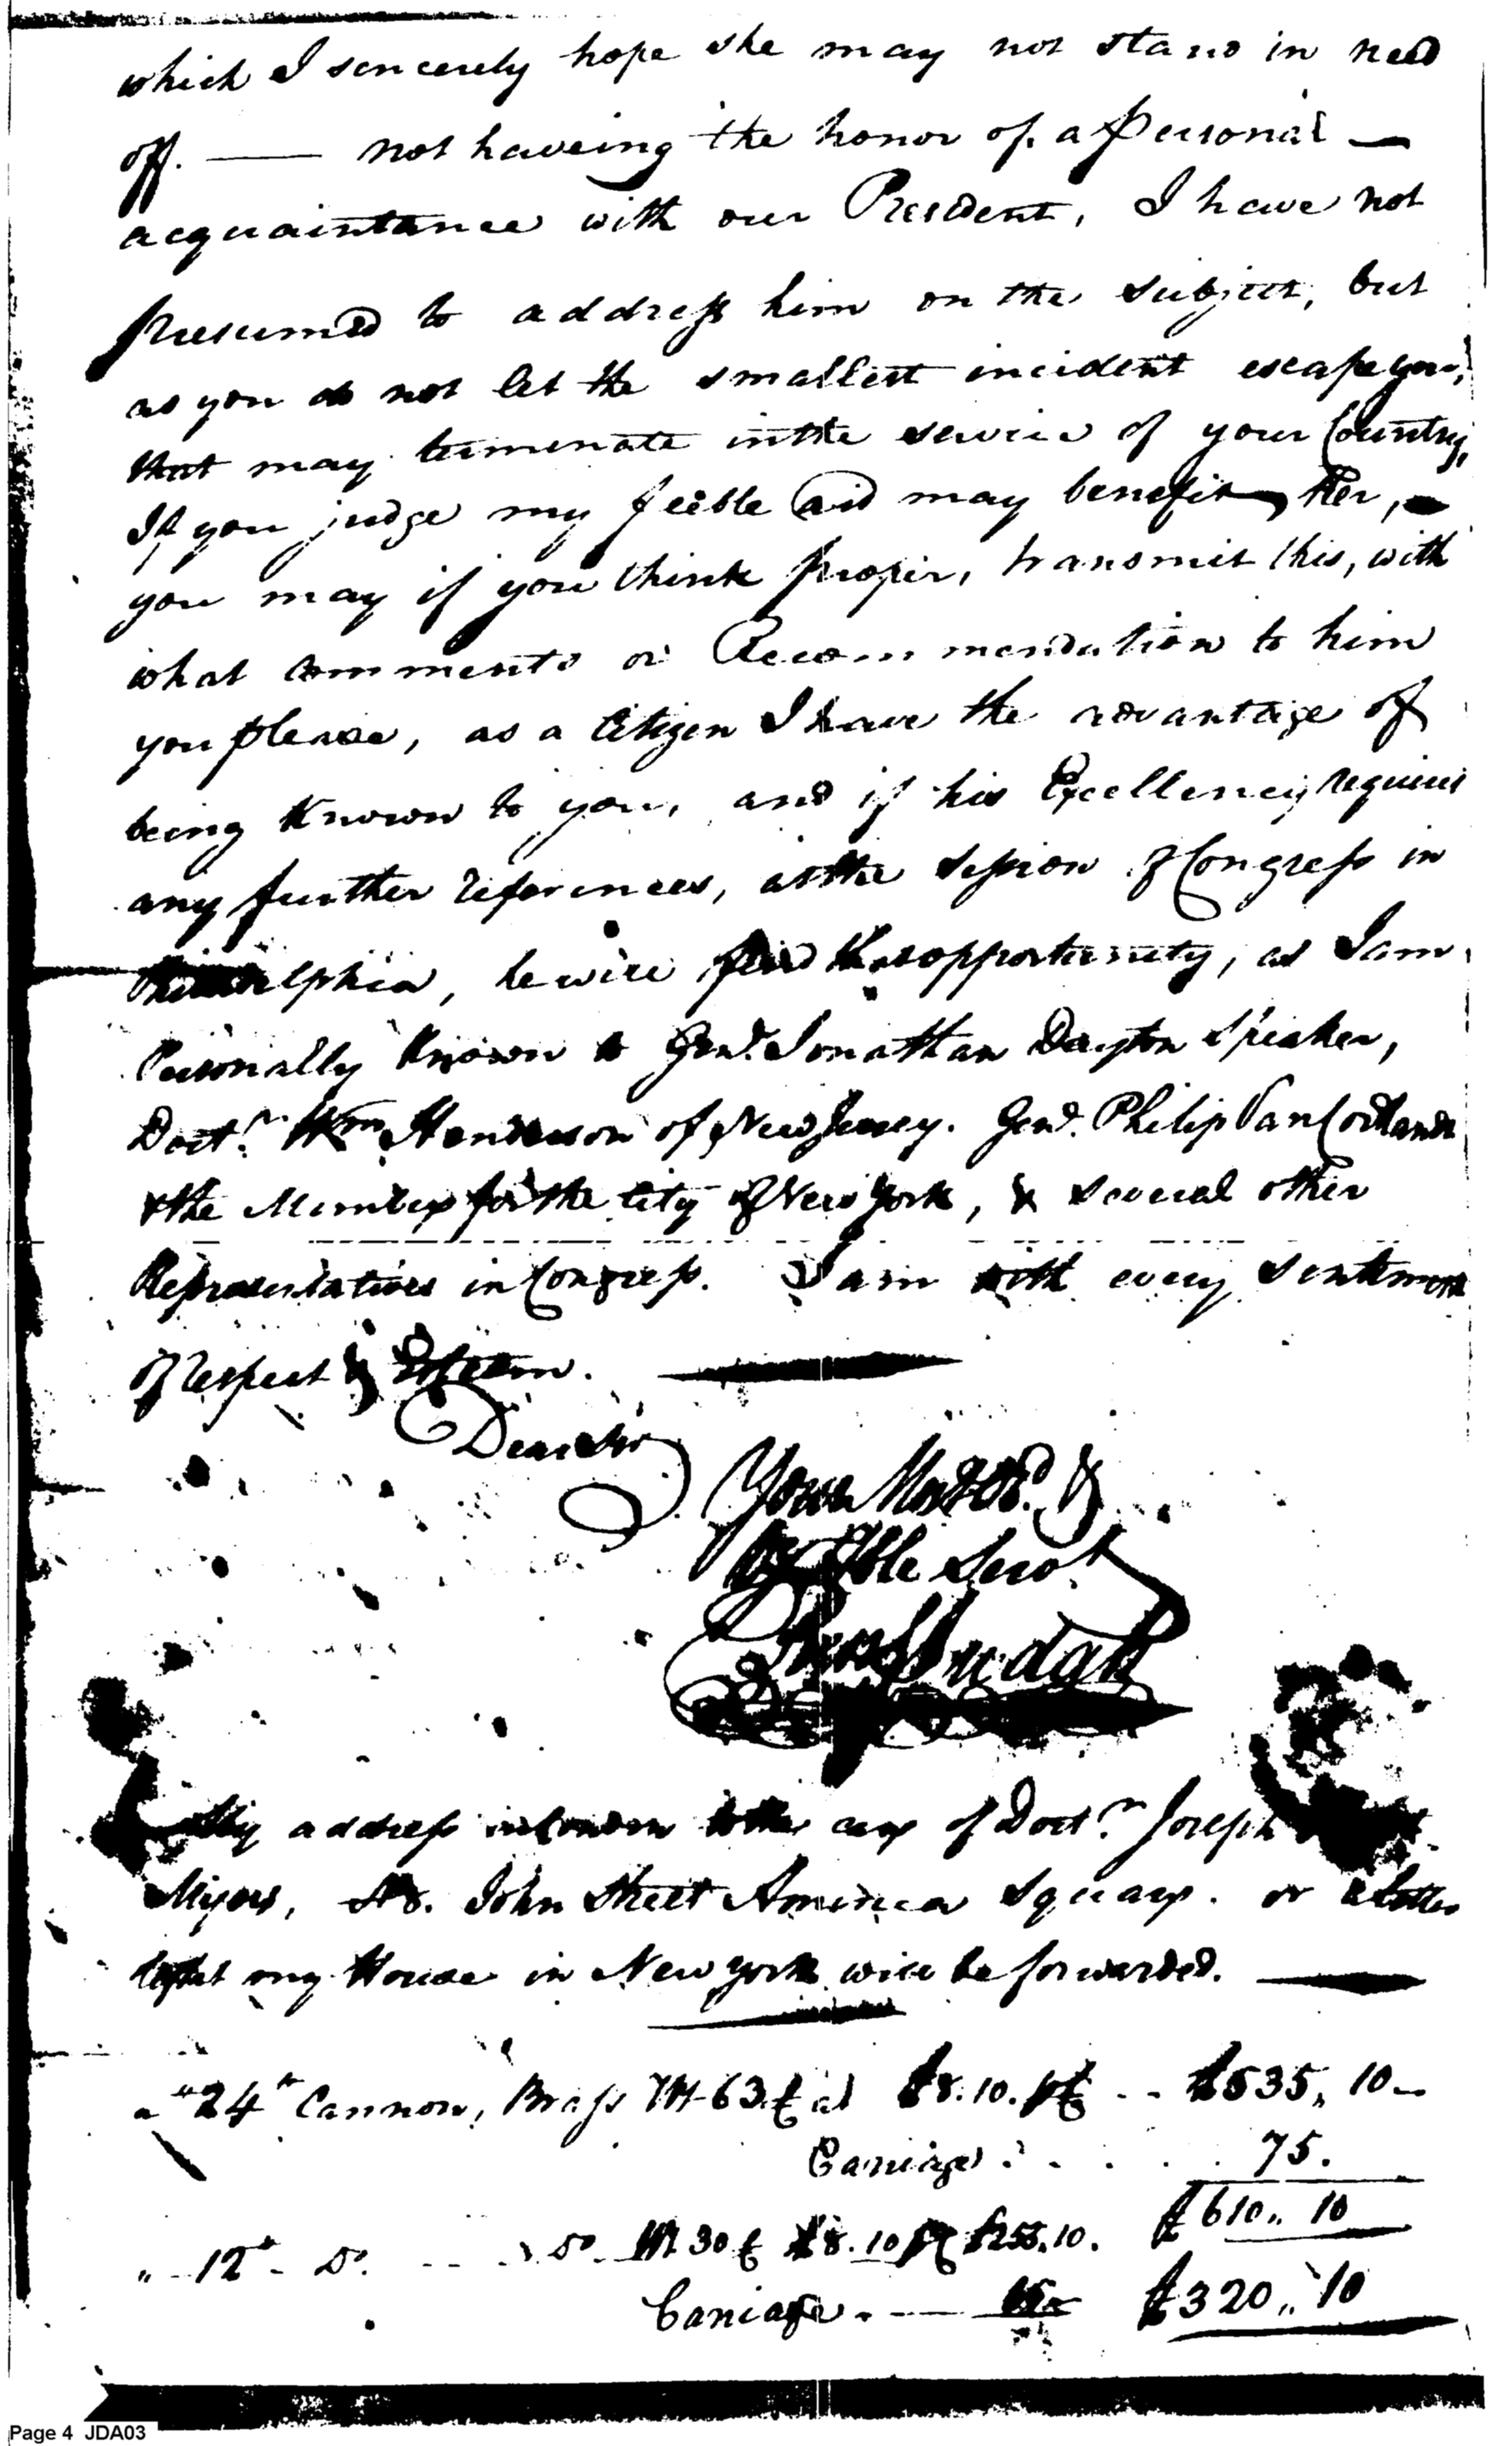 which I sencerely hope she may not stand in need
off. — not haveing the honor of a Personal —
acquaintance with our President, I have not
presumed to address him on the subject, but
as you do not let the smallest incident escape you,
that may terminate in the service of your Country,
If you judge my feeble aid may benefit Her,
you may if you think proper, transmit this, with
what comments or Recommendation to him
you please, as a Citizen I have the advantage of
being known to you, and if his Excellency requires
any further references, at the session of Congress in
Philadelphia, he will find that opportunity, as I am
Personally known to Genl. Jonathan Dayton Speaker,
Doctr. Wm Henderson of New Jersey. Genl. Philip Van Cortlandt
& the Members for the City of New York, & several other
Representatives in Congress. I am with every sentiment
of respect & Esteem.
Dear Sir
Your Most Obd. &
Hble Servt
Judah
My address in London to the care of Doctr. Joseph
Myers, John Street America Square. or a letter
left at my House in New York will be forwarded.
a 24 Cannon, Brass Wt 63 at £8.10. — £535, 10 —
Carriage . . . . 75.
£610,, 10
" 12 Do. — Do. Wt 30 £8.10 10.
Carriage . — £320,, 10
Page 4 JDA03